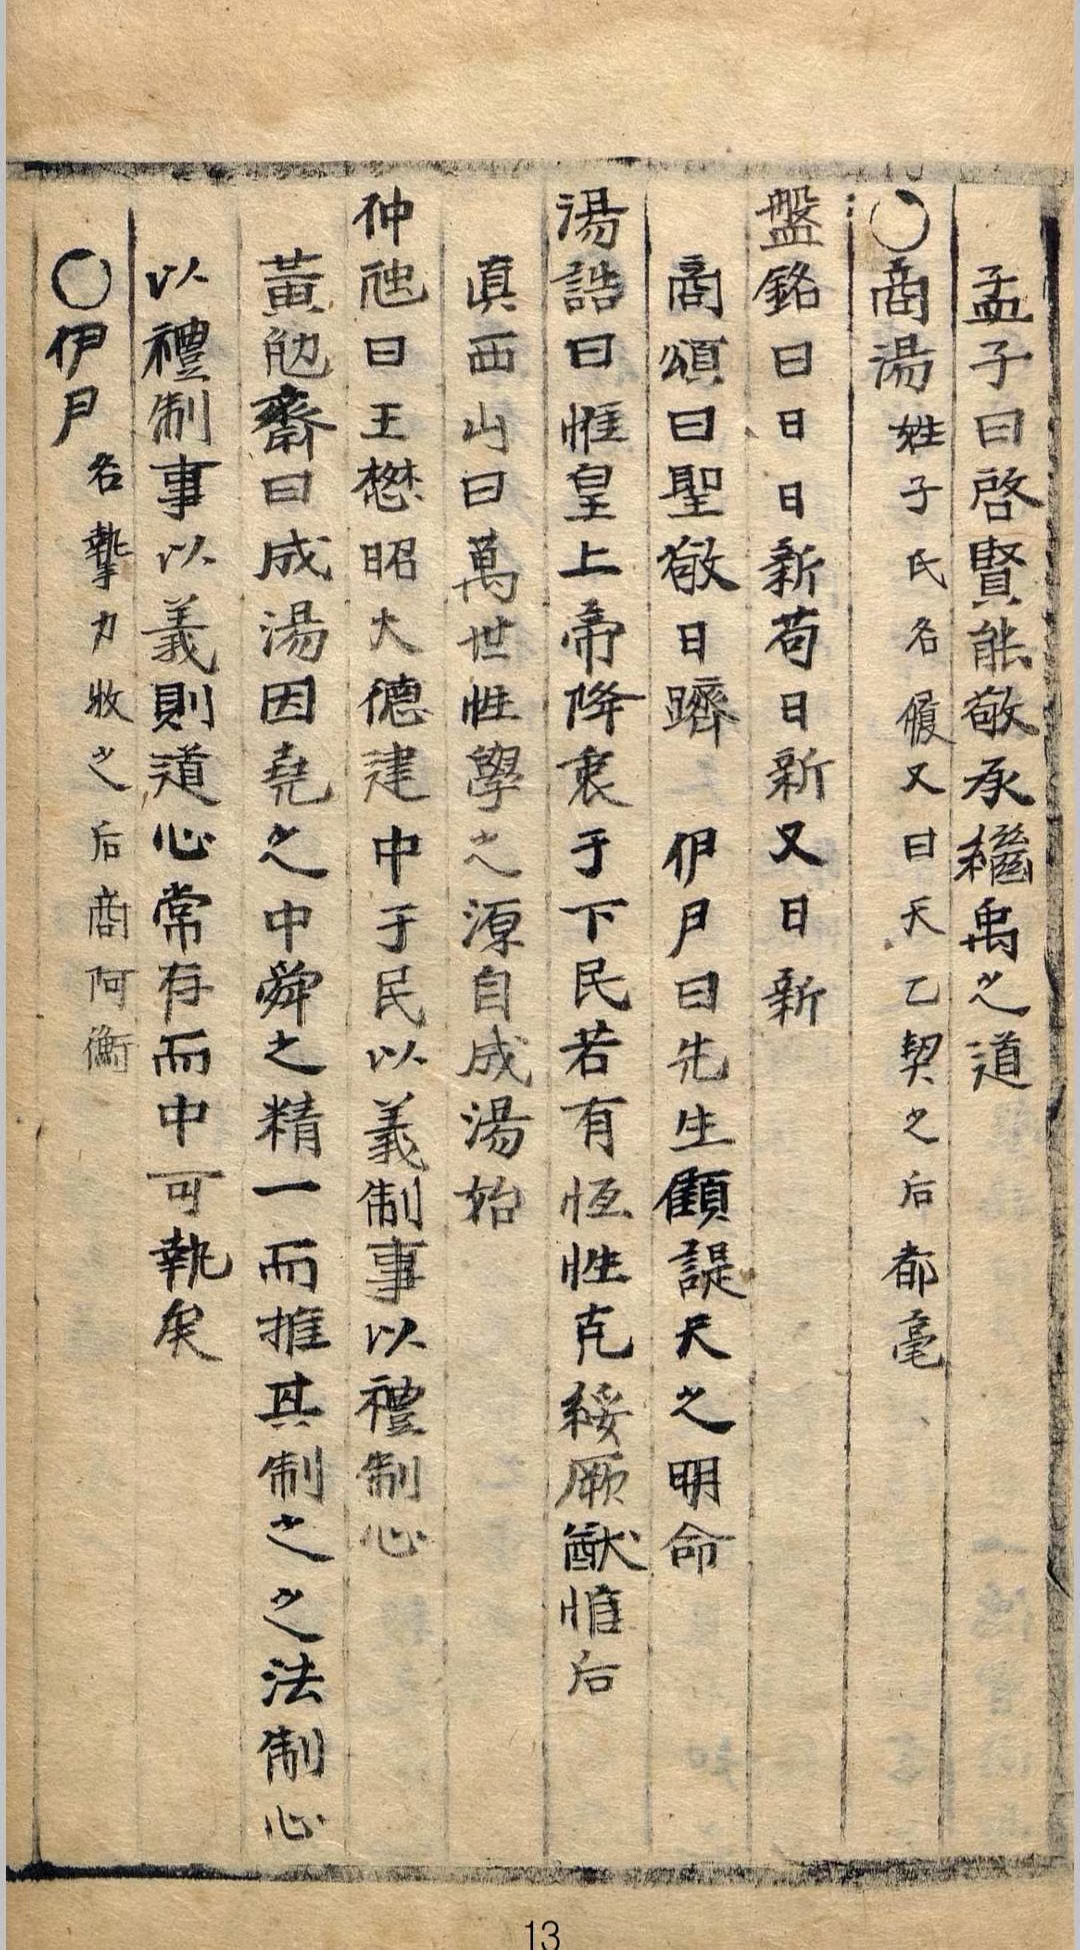 孟子曰啓賢能敬承繼禹之道
○商湯姓子氏名履又曰天乙契之后都亳
盤銘曰日日新苟日新又日新
商頌曰聖敬日躋 伊尹曰先生顧諟天之明命
湯誥曰惟皇上帝降衷于下民若有恆性克綏厥猷惟后
眞西山曰萬世性學之源自成湯始
仲虺曰王懋昭大德建中于民以義制事以禮制心
黃勉齋曰成湯因堯之中舜之精一而推其制之之法制心
以禮制事以義則道心常存而中可執矣
○伊尹名摯力牧之后商阿衡
13